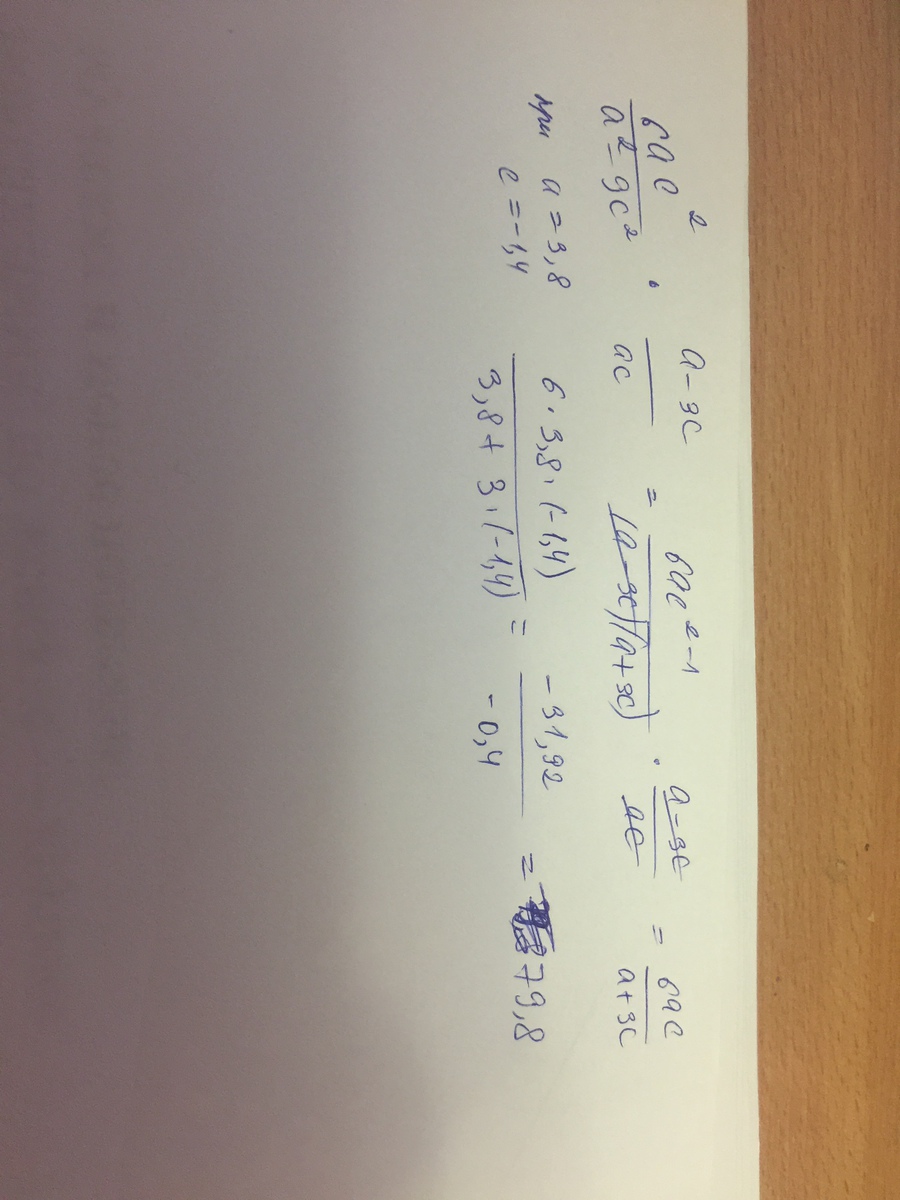 6ac² / a² - 9c² · a - 3c / ac = 6ac²⁻¹ / (a - 3c)(a + 3c) · a - 3c / ac = 6ac / a + 3c
при a = 3,8 c = -1,4 6 · 3,8 · (-1,4) / 3,8 + 3 · (-1,4) = -31,92 / -0,4 = 79,8